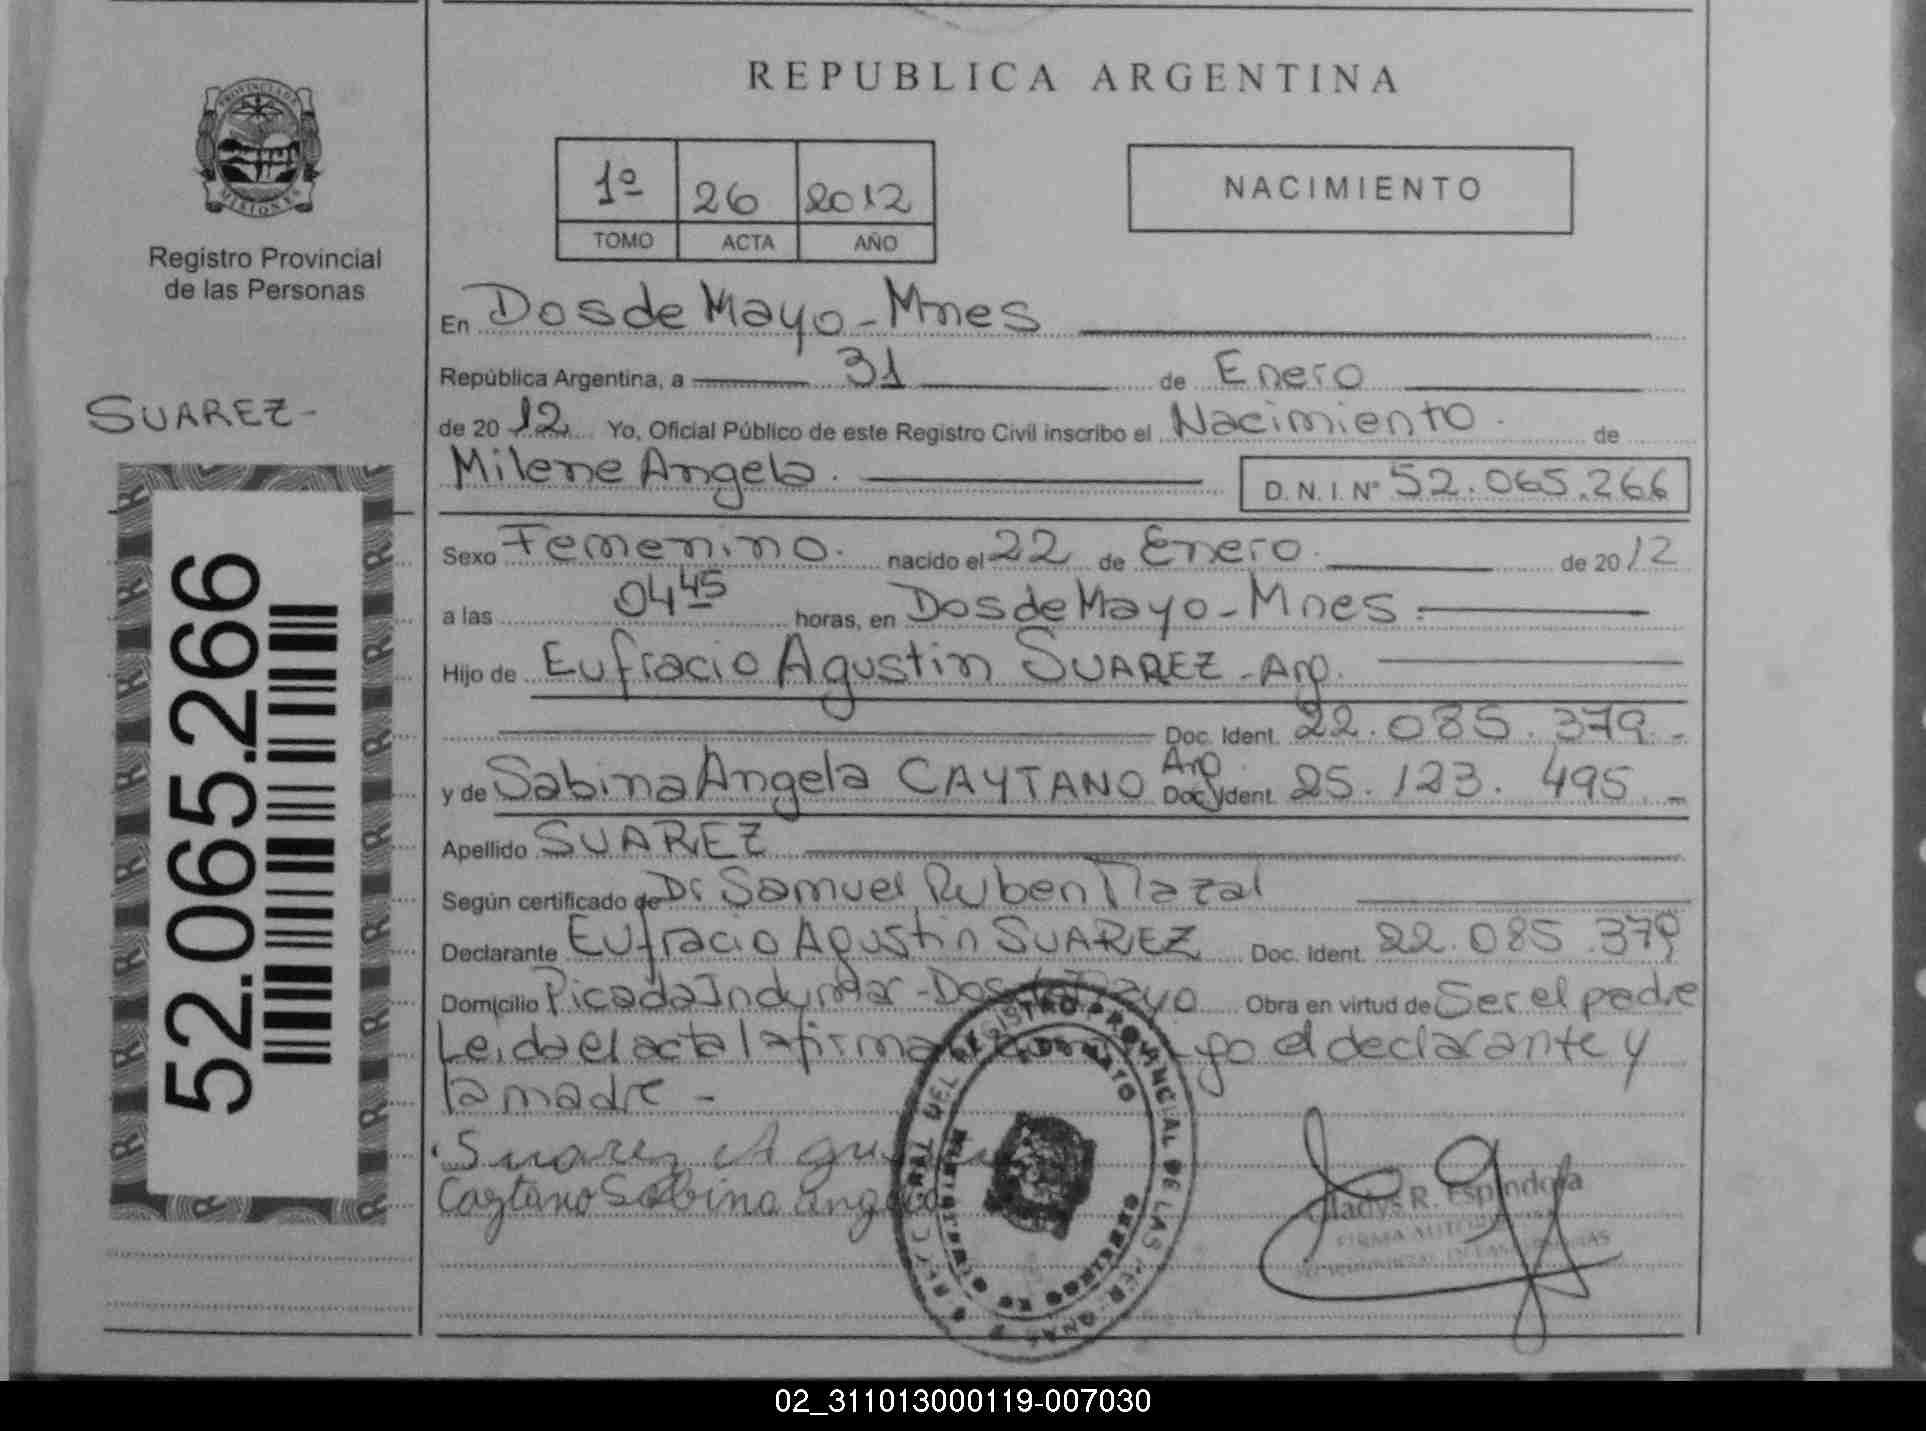 REPUBLICA ARGENTINA
PROVINCIA DE
MISIONES
Registro Provincial
de las Personas
1º 26 2012
TOMO ACTA AÑO
NACIMIENTO
SUAREZ-
52.065.266
En Dos de Mayo - Mnes
República Argentina, a 31 de Enero
de 2012 Yo, Oficial Público de este Registro Civil inscribo el Nacimiento. de
Milene Angela. D.N.I. Nº 52.065.266
Sexo Femenino. nacido el 22 de Enero. de 2012
a las 04 45 horas, en Dos de Mayo - Mnes.
Hijo de Eufracio Agustin SUAREZ - Arg.
Doc. Ident. 22.085.379.-
y de Sabina Angela CAYTANO Arg. Doc. Ident. 25.123.495.-
Apellido SUAREZ
Según certificado de Dr Samuel Ruben Nazal
Declarante Eufracio Agustin SUAREZ Doc. Ident. 22.085.379
Domicilio Picada Indumar - Dos de Mayo Obra en virtud de Ser el padre
Leida el acta la firman go el declarante y
la madre -
Suarez Agus
Caytano Sabina angela
DEL REGISTRO PROVINCIAL DE LAS PERSONAS
MINISTERIO DE GOBIERNO
Gladys R. Espindola
FIRMA
02_311013000119-007030